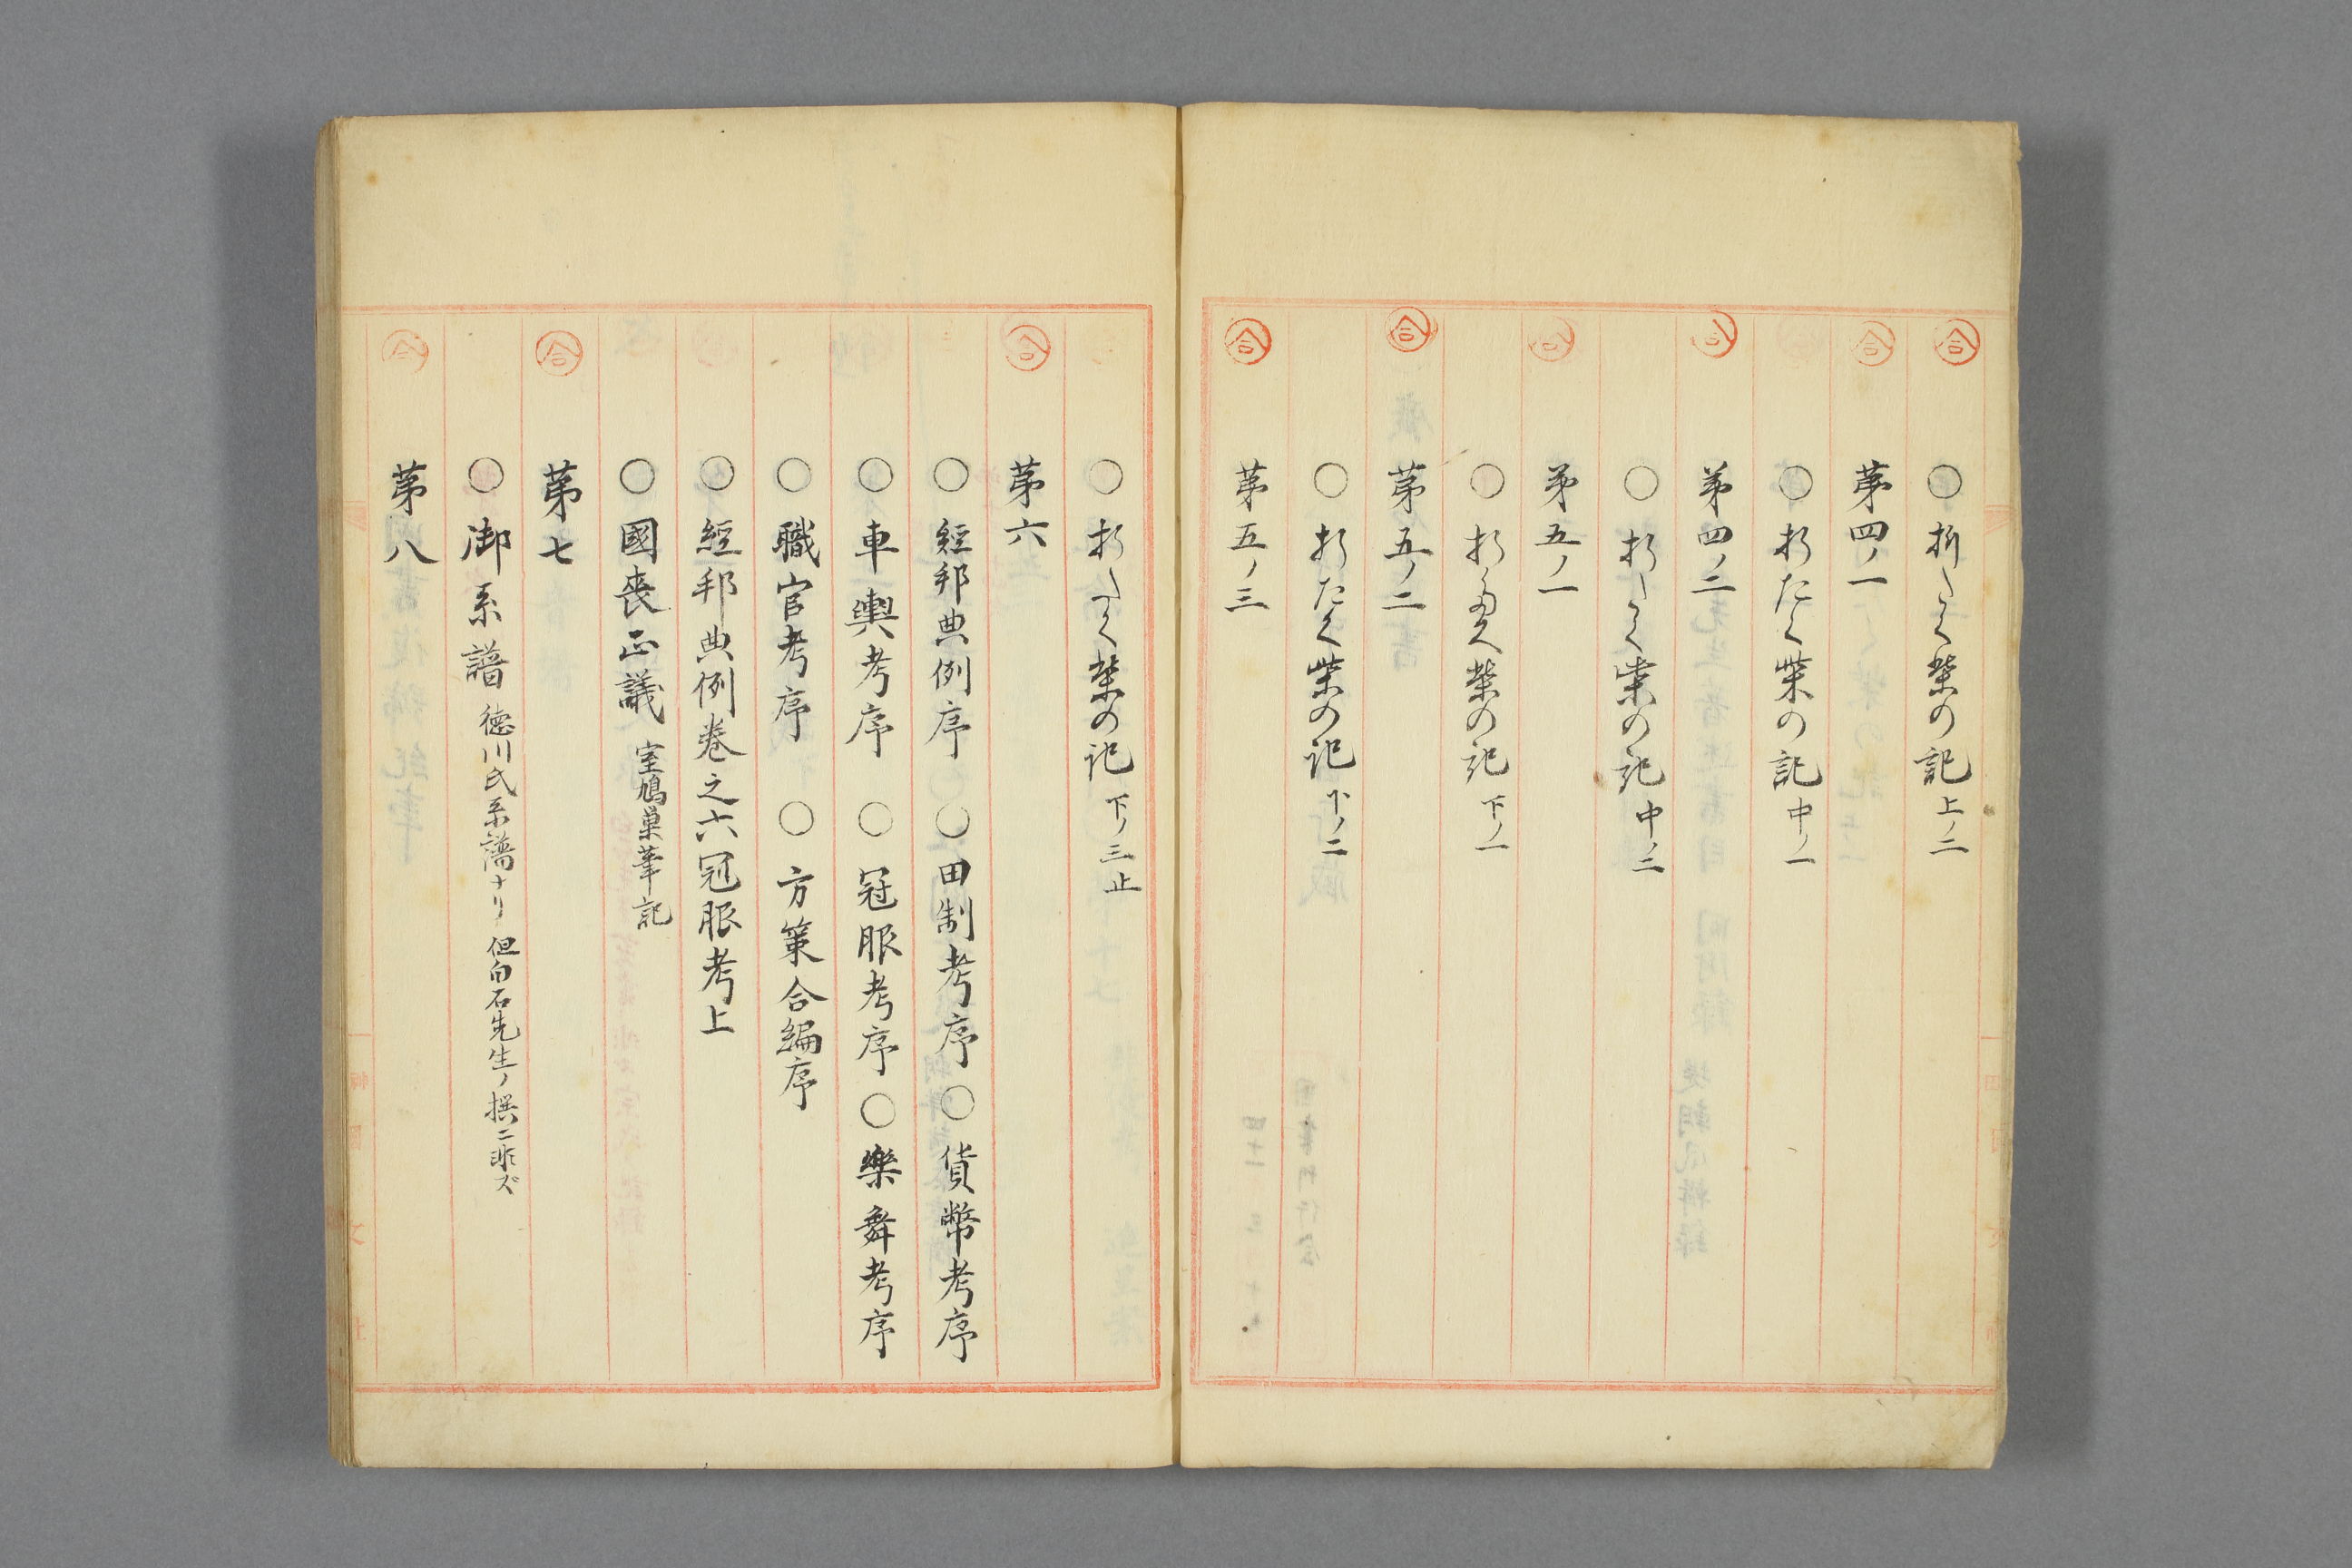 ○折たく柴の記上ノ二
第四ノ一
○折たく柴の記中ノ一
第四ノ二
○折たく柴の記中ノ二
第五ノ一
○折多く柴の記下ノ一
第五ノ二
○折たく柴の記下ノ二
第五ノ三
○折たく柴の記下ノ三止
第六
○經邦典例序○田制考序○貨幣考序
○車輿考序○冠服考序○樂舞考序
○職官考序○方策合編序
○經邦典例巻之六冠服考上
○國喪正議 室鳩巣筆記
第七
○御系譜 徳川氏系譜ナリ但白石先生ノ撰ニ非ズ
第八